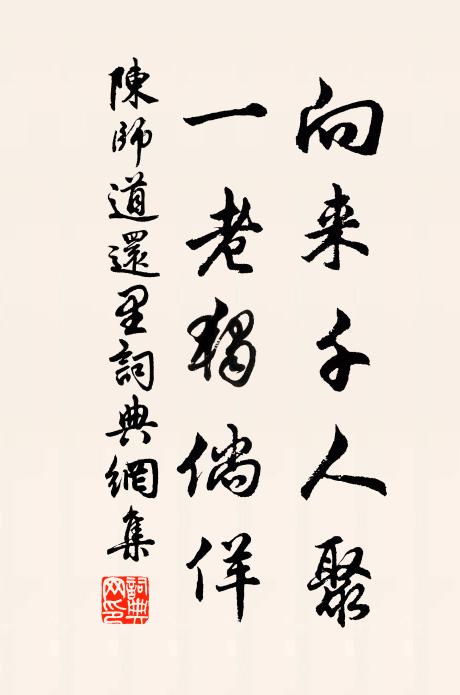 向来千人聚
一老獨倘佯
陳師道還里詞典網集
詞典
网印